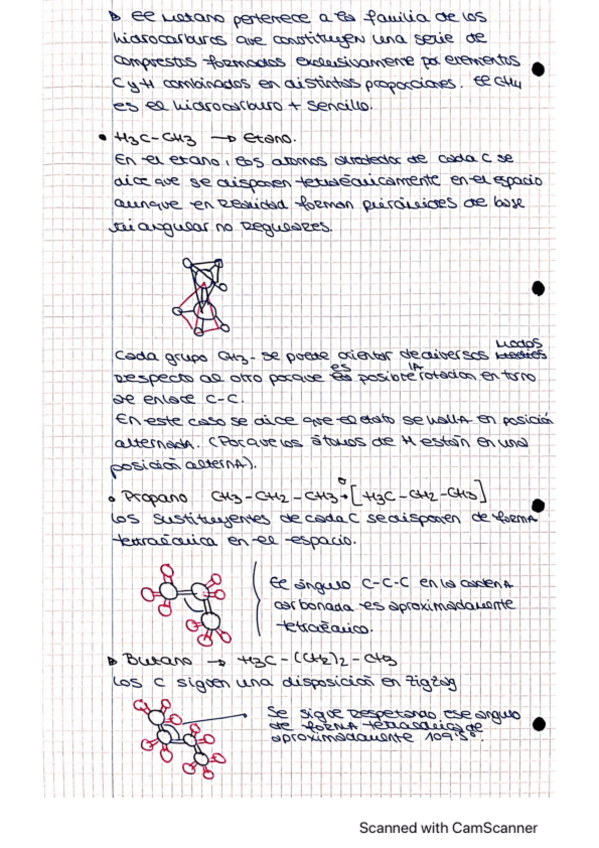 ▷ El Metano pertenece a la familia de los
hidrocarburos que constituyen una serie de
compuestos formados exclusivamente por elementos
C y H combinados en distintas proporciones. El CH4
es el hidrocarburo + sencillo.
• H3C-CH3 → Etano.
En el etano, los átomos alrededor de cada C se
dice que se disponen tetraédricamente en el espacio
aunque en Realidad forman pirámides de base
triangular no Regulares.
Cada grupo CH3- se puede orientar de diversos modos
Respecto al otro porque es posible lA rotación en torno
de enlace C-C.
En este caso se dice que el etato se hallA en posición
alternadA. (Porque los átomos de H están en una
posición alternA).
o Propano CH3-CH2-CH3 ó [H3C-CH2-CH3]
los sustituyentes de cada C se disponen de formA
tetraédrica en el espacio.
El ángulo C-C-C en la cadenA
carbonada es aproximadamente
tetraédrico.
▷ Butano → H3C-(CH2)2-CH3
los C siguen una disposición en zigzag
Se sigue Respetando ese angulo
de formA tetraédrica de
aproximadamente 109'5º.
Scanned with CamScanner